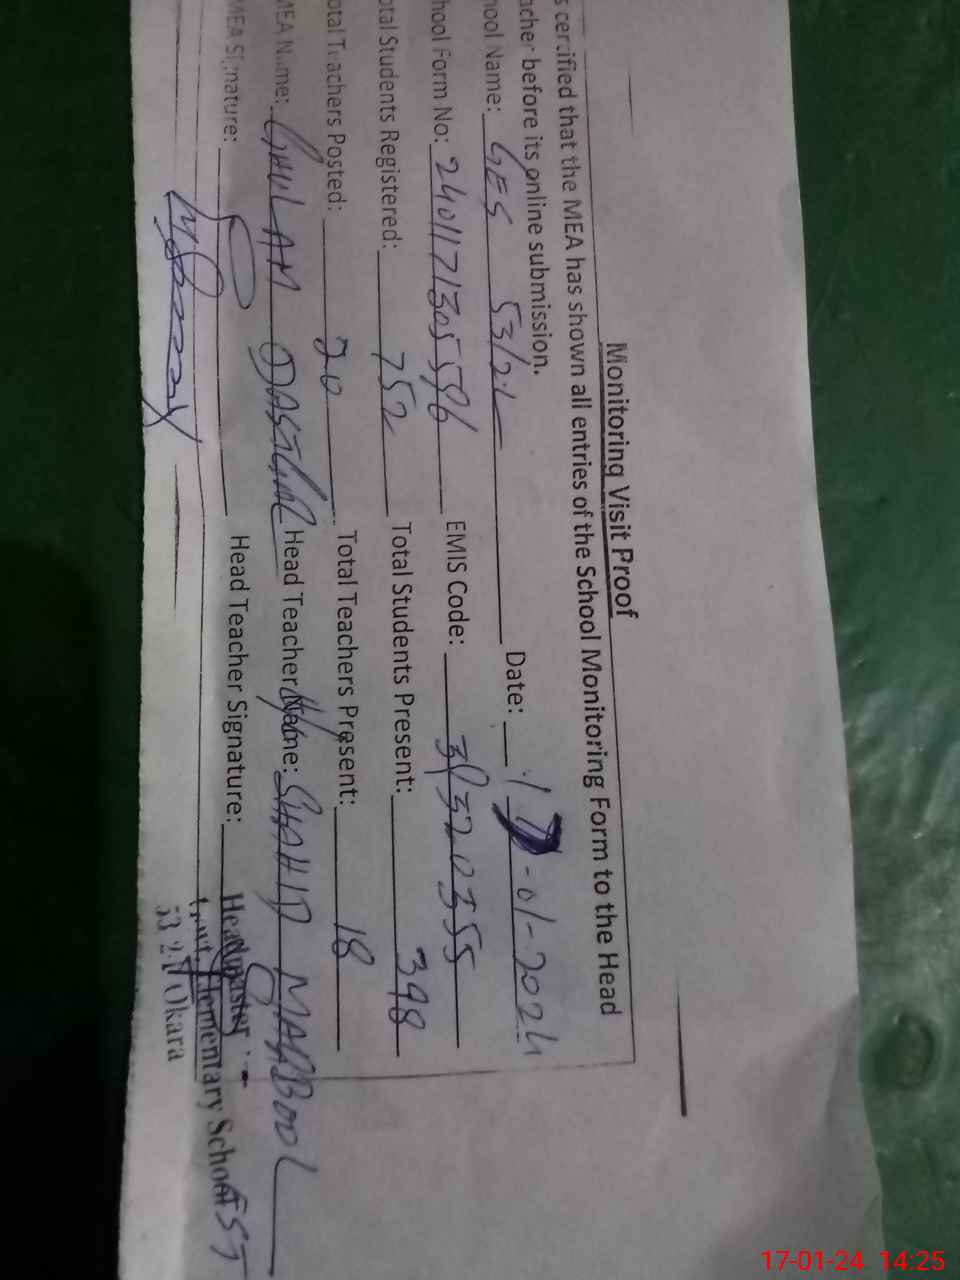 Monitoring Visit Proof
s certified that the MEA has shown all entries of the School Monitoring Form to the Head
acher before its online submission.
ool Name: GES 53/2-L Date: 17-01-2024
hool Form No: 2401171305596 EMIS Code: 39320355
otal Students Registered: 752 Total Students Present: 398
otal Teachers Posted: 20 Total Teachers Present: 18
MEA Name: GHULAM DASTGIR Head Teacher Name: SHAHID MAQBOOL
MEA Signature: Head Teacher Signature:
Headmaster
Govt. Elementary School EST
53 2-L Okara
17-01-24 14:25